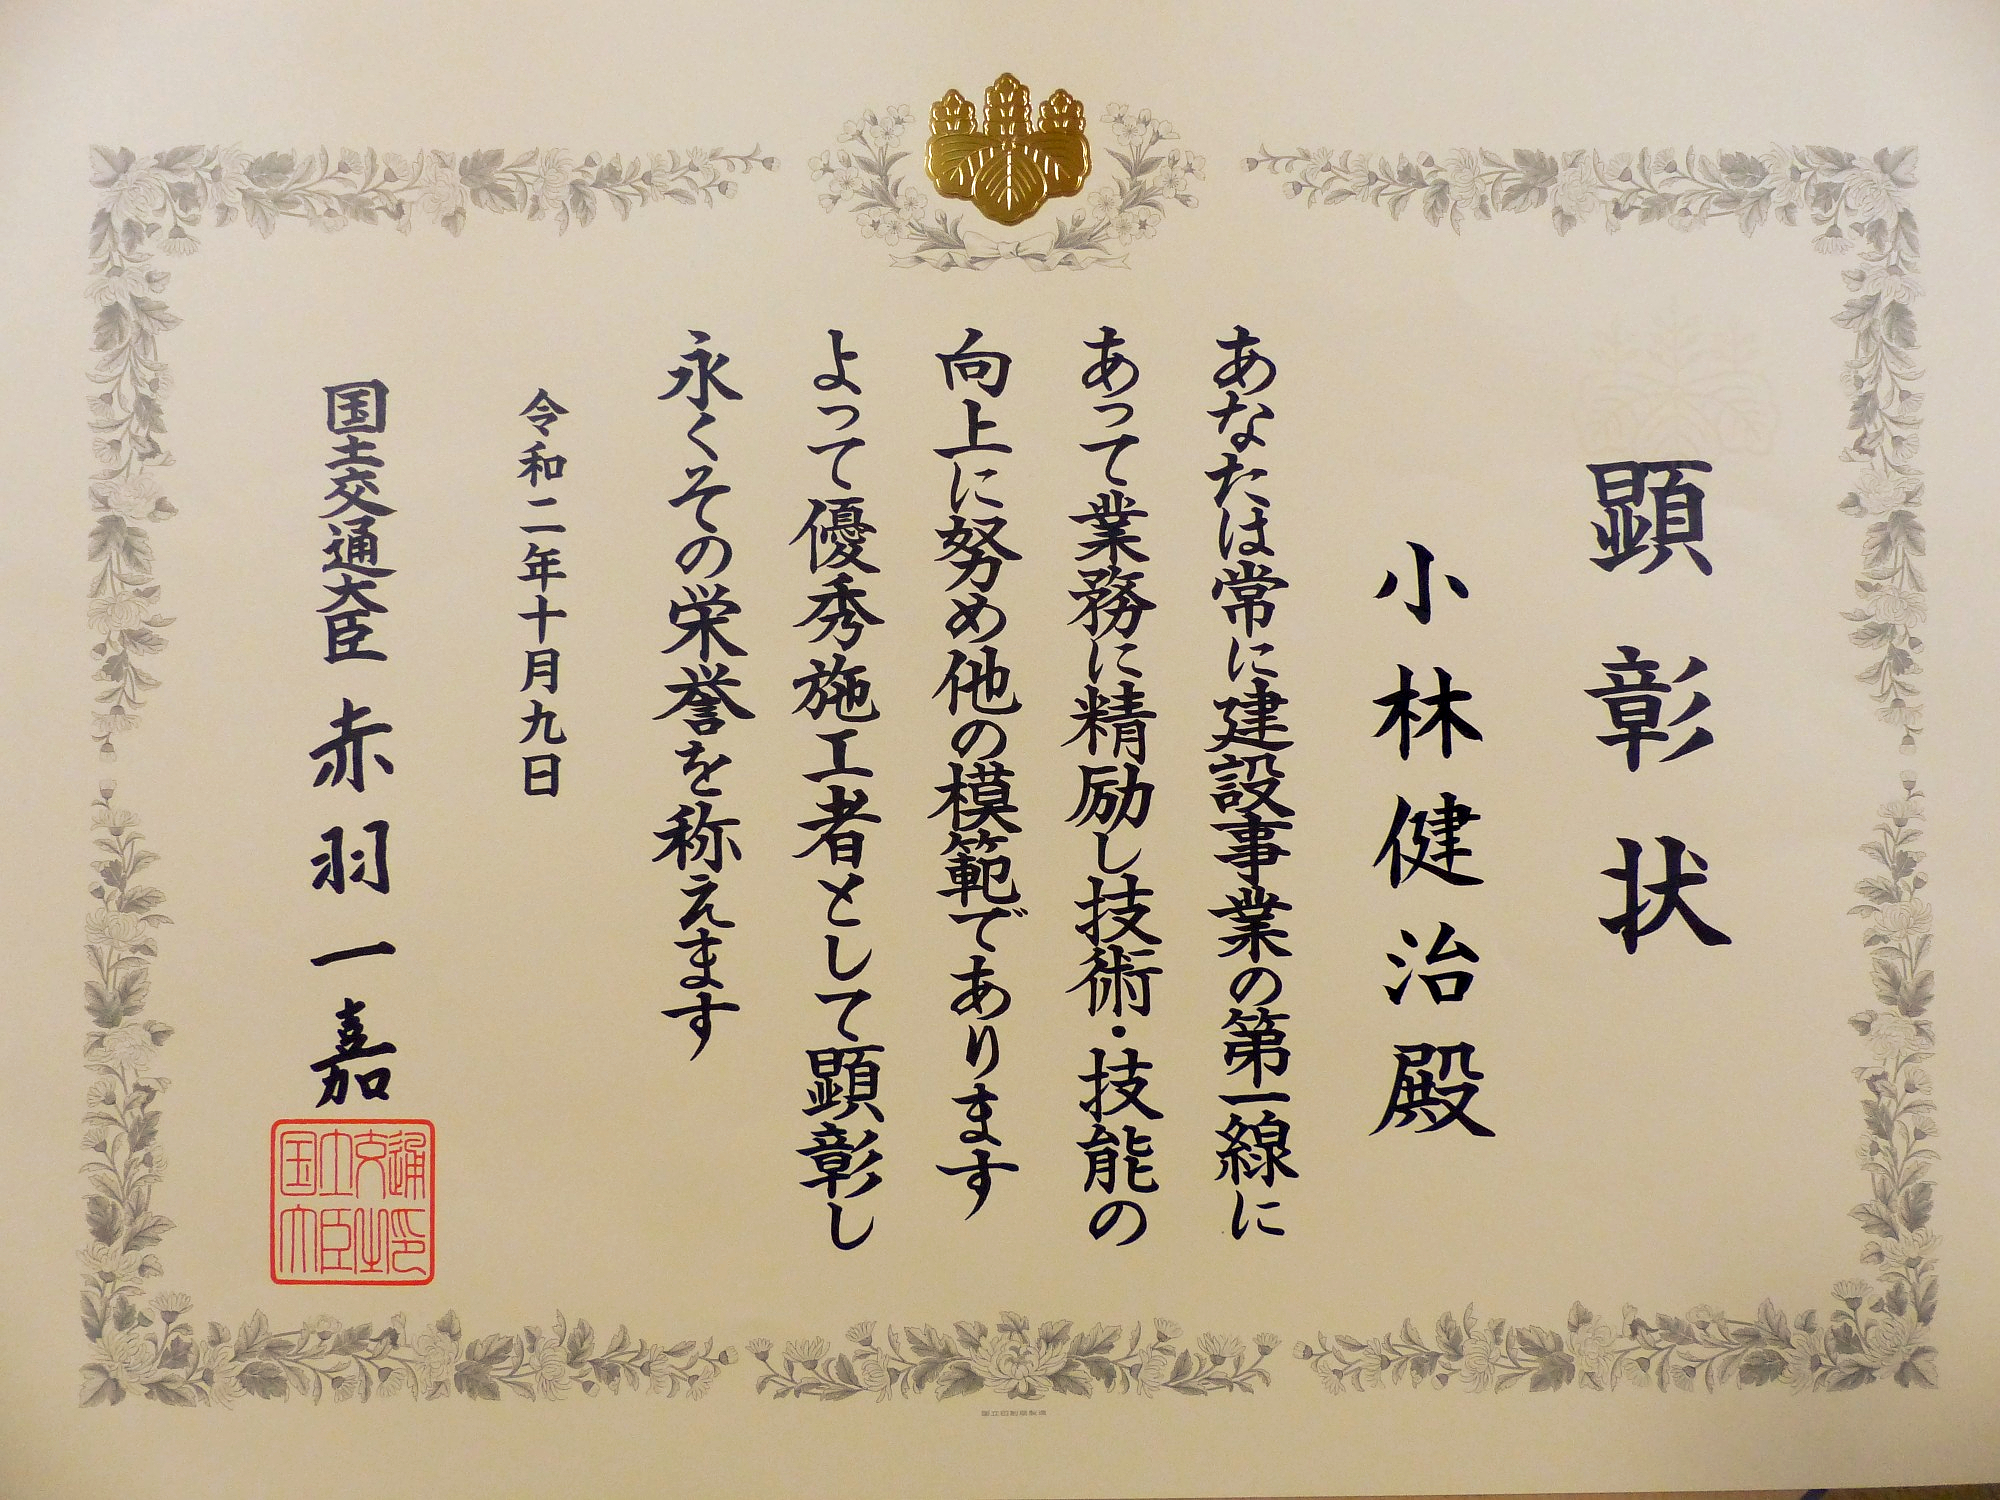 顕彰状
小林健治殿
あなたは常に建設事業の第一線に
あって業務に精励し技術・技能の
向上に努め他の模範であります
よって優秀施工者として顕彰し
永くその栄誉を称えます
令和二年十月九日
国土交通大臣 赤羽一嘉
国土交通大臣之印
国立印刷局製造